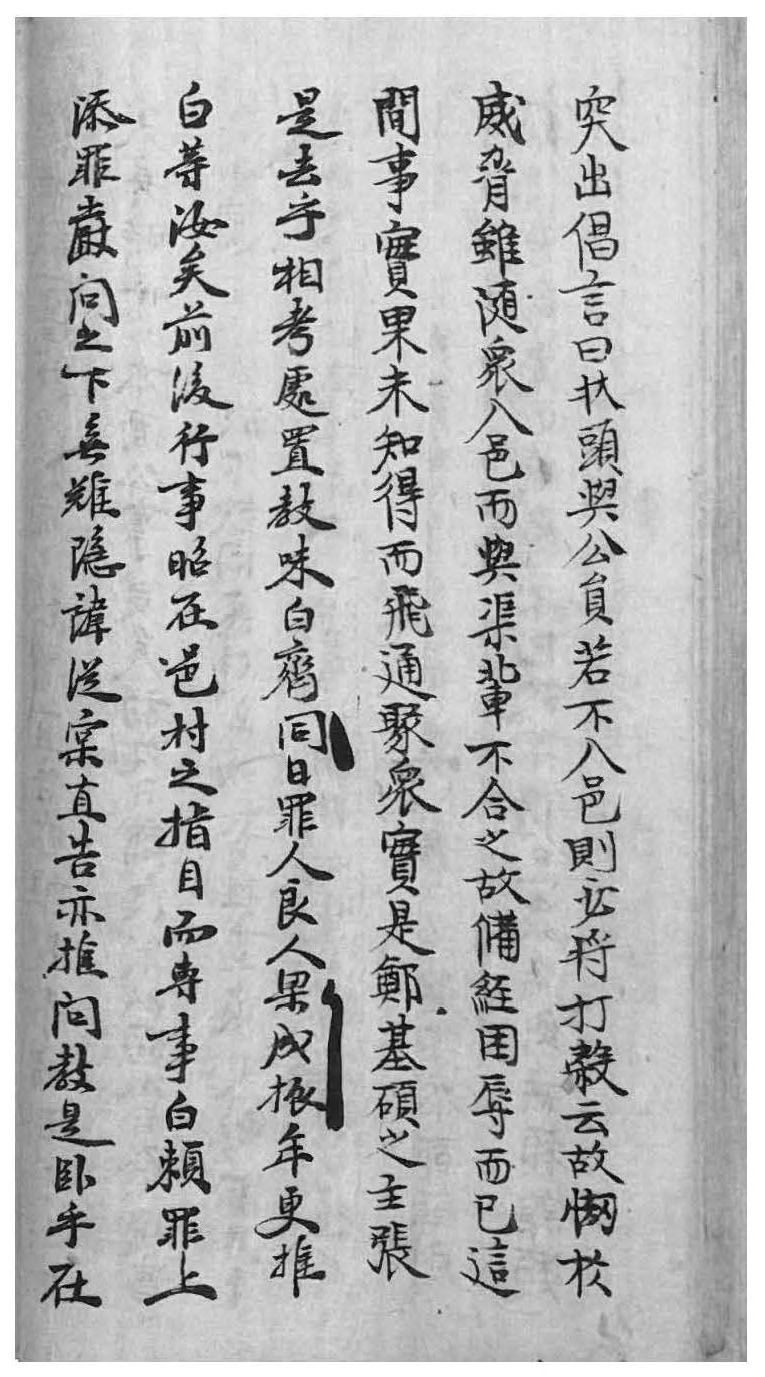 突出倡言曰狀頭與公員若不入邑則必將打殺云故惘於
威脅雖随衆入邑而與渠輩不合之故備經困辱而已這
間事實果未知得而飛通聚衆實是鄭基碩之主張
是去乎相考處置教味白齊同日罪人良人梁成振年更推
白等汝矣前後行事昭在邑村之指目而專事白賴罪上
添罪嚴問之下無難隐諱従實直告亦推問教是卧乎在